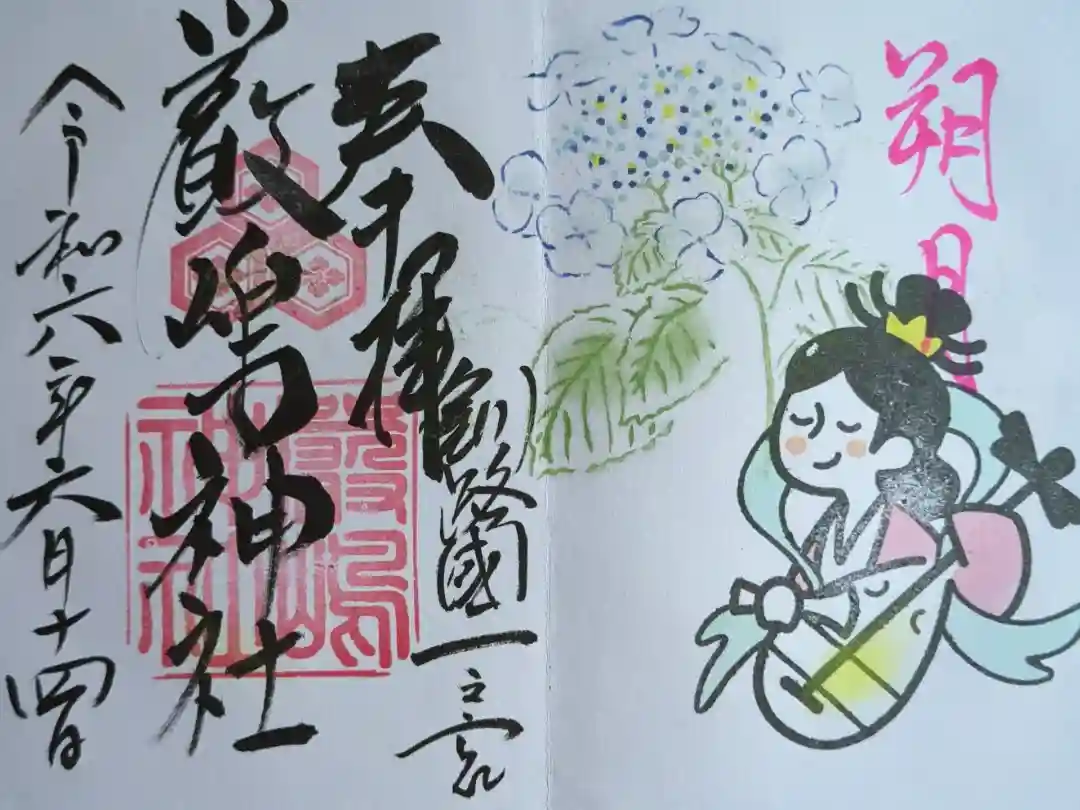 朔日
奉拝
釧路國一之宮
厳嶋神社
嚴嶋神社
令和六年六月十四日